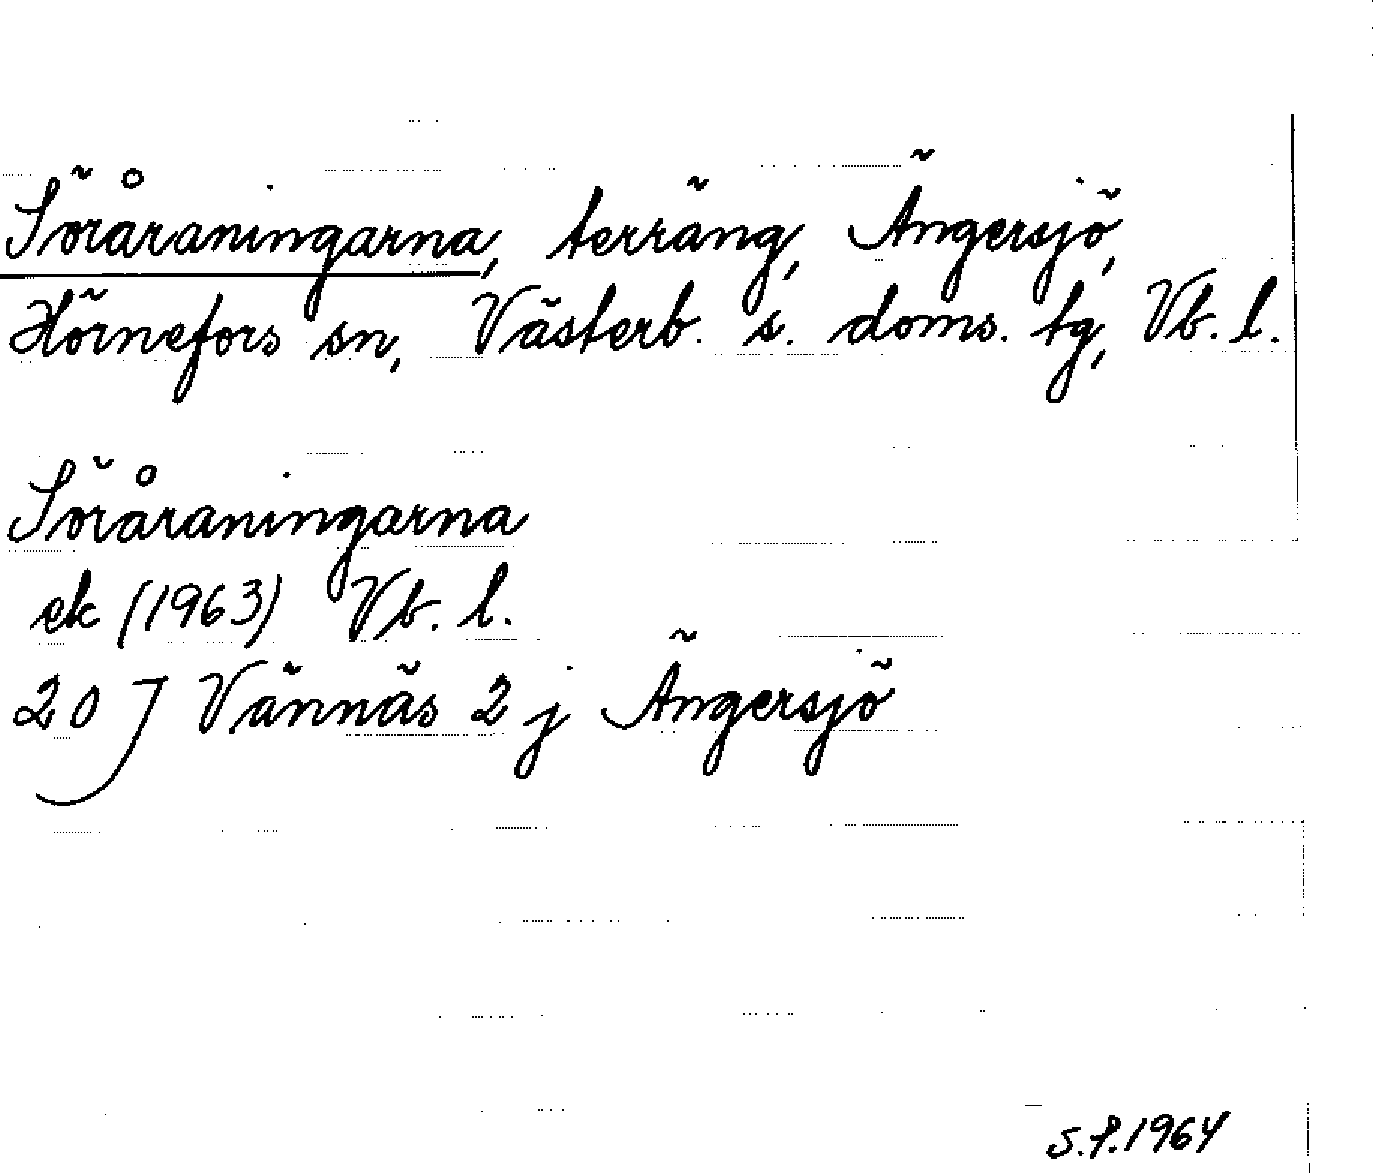 Söråraningarna, terräng, Ängersjö,
Hörnefors sn, Västerb. s. doms. tg, Vb. l.
Söråraningarna
ek (1963) Vb. l.
20 J Vännäs 2 j Ängersjö
S.f. 1964